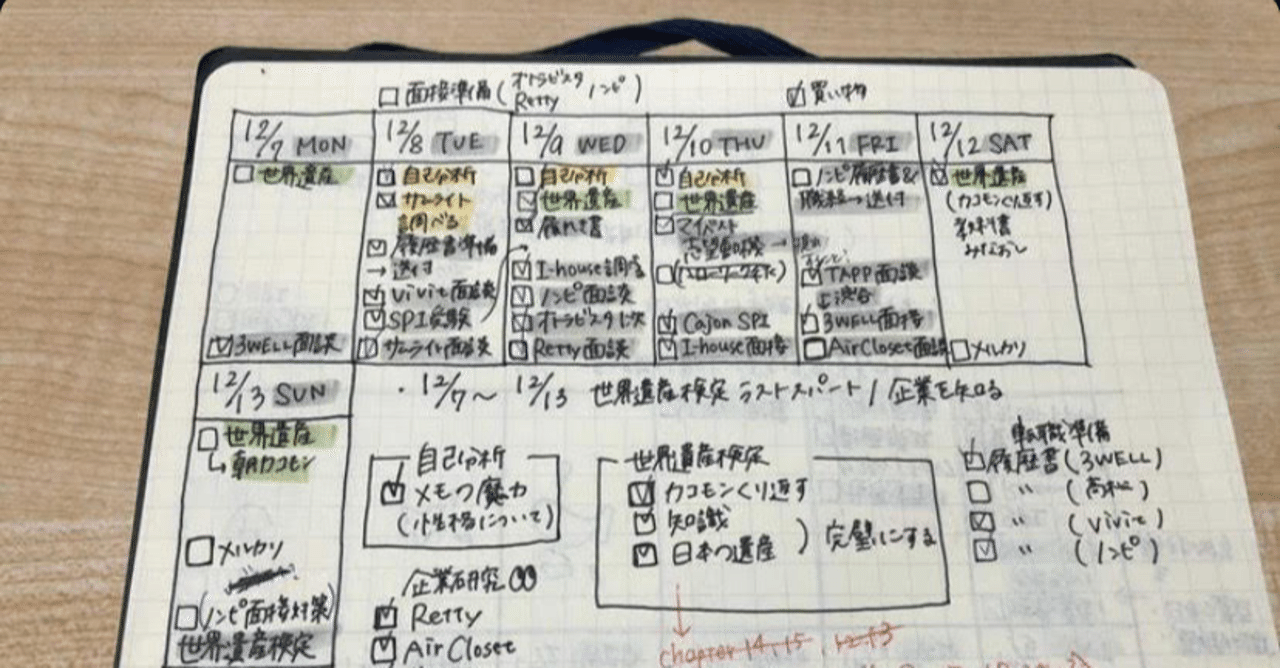 面接準備(オトラビスタ ノンピ)
Retty
買い物
12/7 MON
世界遺産
3WELL面談
12/8 TUE
自己分析
サンライト
調べる
履歴書準備
→送付
Vivit面談
SPI受験
サンライト面談
12/9 WED
自己分析
世界遺産
履れき書
I-house調べる
ノンピ面談
オトラビスタ1次
Retty面談
12/10 THU
自己分析
世界遺産
マイベスト
志望動機→
(ハローワーク
Cajon SPI
I-house面接
12/11 FRI
ノンピ履歴書&
職経の送付
TAPP面談
渋谷
3WELL面接
AirCloset面談
12/12 SAT
世界遺産
(カコモンくり返す)
教科書
みなおし
メルカリ
12/13 SUN
世界遺産
→朝カコモン
メルカリ
(ノンピ面接対策)
世界遺産検定
・12/7〜12/13 世界遺産検定ラストスパート/企業を知る
自己分析
メモの魔力
(性格について)
企業研究
Retty
AirCloset
世界遺産検定
カコモンくり返す
知識
日本の遺産
)完璧にする
chapter 14.15. 12.13
転職準備
履歴書(3WELL)
〃 (高松)
〃 (Vivit)
〃 (ノンピ)